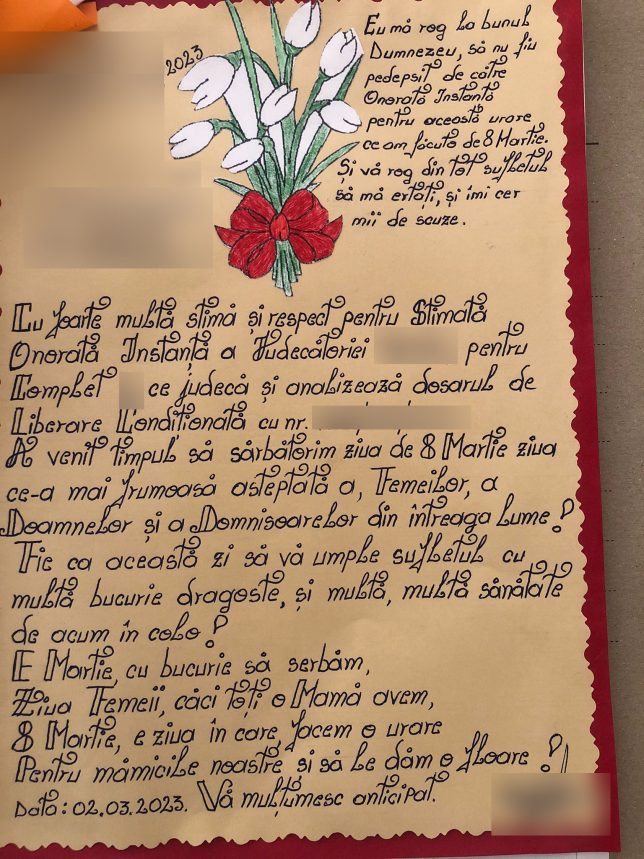 2023
Eu mă rog la bunul
Dumnezeu, să nu fiu
pedepsit de către
Onorată Instanță
pentru această urare
ce am făcuto de 8 Martie.
Și vă rog din tot sufletul
să mă ertați, și îmi cer
mii de scuze.
Cu foarte multă stimă și respect pentru Stimată
Onorată Instanță a Judecătoriei pentru
Complet ce judecă și analizează dosarul de
Liberare Condiționată cu nr.
A venit timpul să sărbătorim ziua de 8 Martie ziua
ce-a mai frumoasă așteptată a, Femeilor, a
Doamnelor și a Domnisoarelor din întreaga lume!
Fie ca această zi să vă umple sufletul cu
multă bucurie dragoste, și multă, multă sănătate
de acum în colo!
E Martie, cu bucurie să serbăm,
Ziua Femeii, căci toți o Mamă avem,
8 Martie, e ziua în care, facem o urare
Pentru mămicile noastre și să le dăm o floare!
Data: 02.03.2023. Vă mulțumesc anticipat.